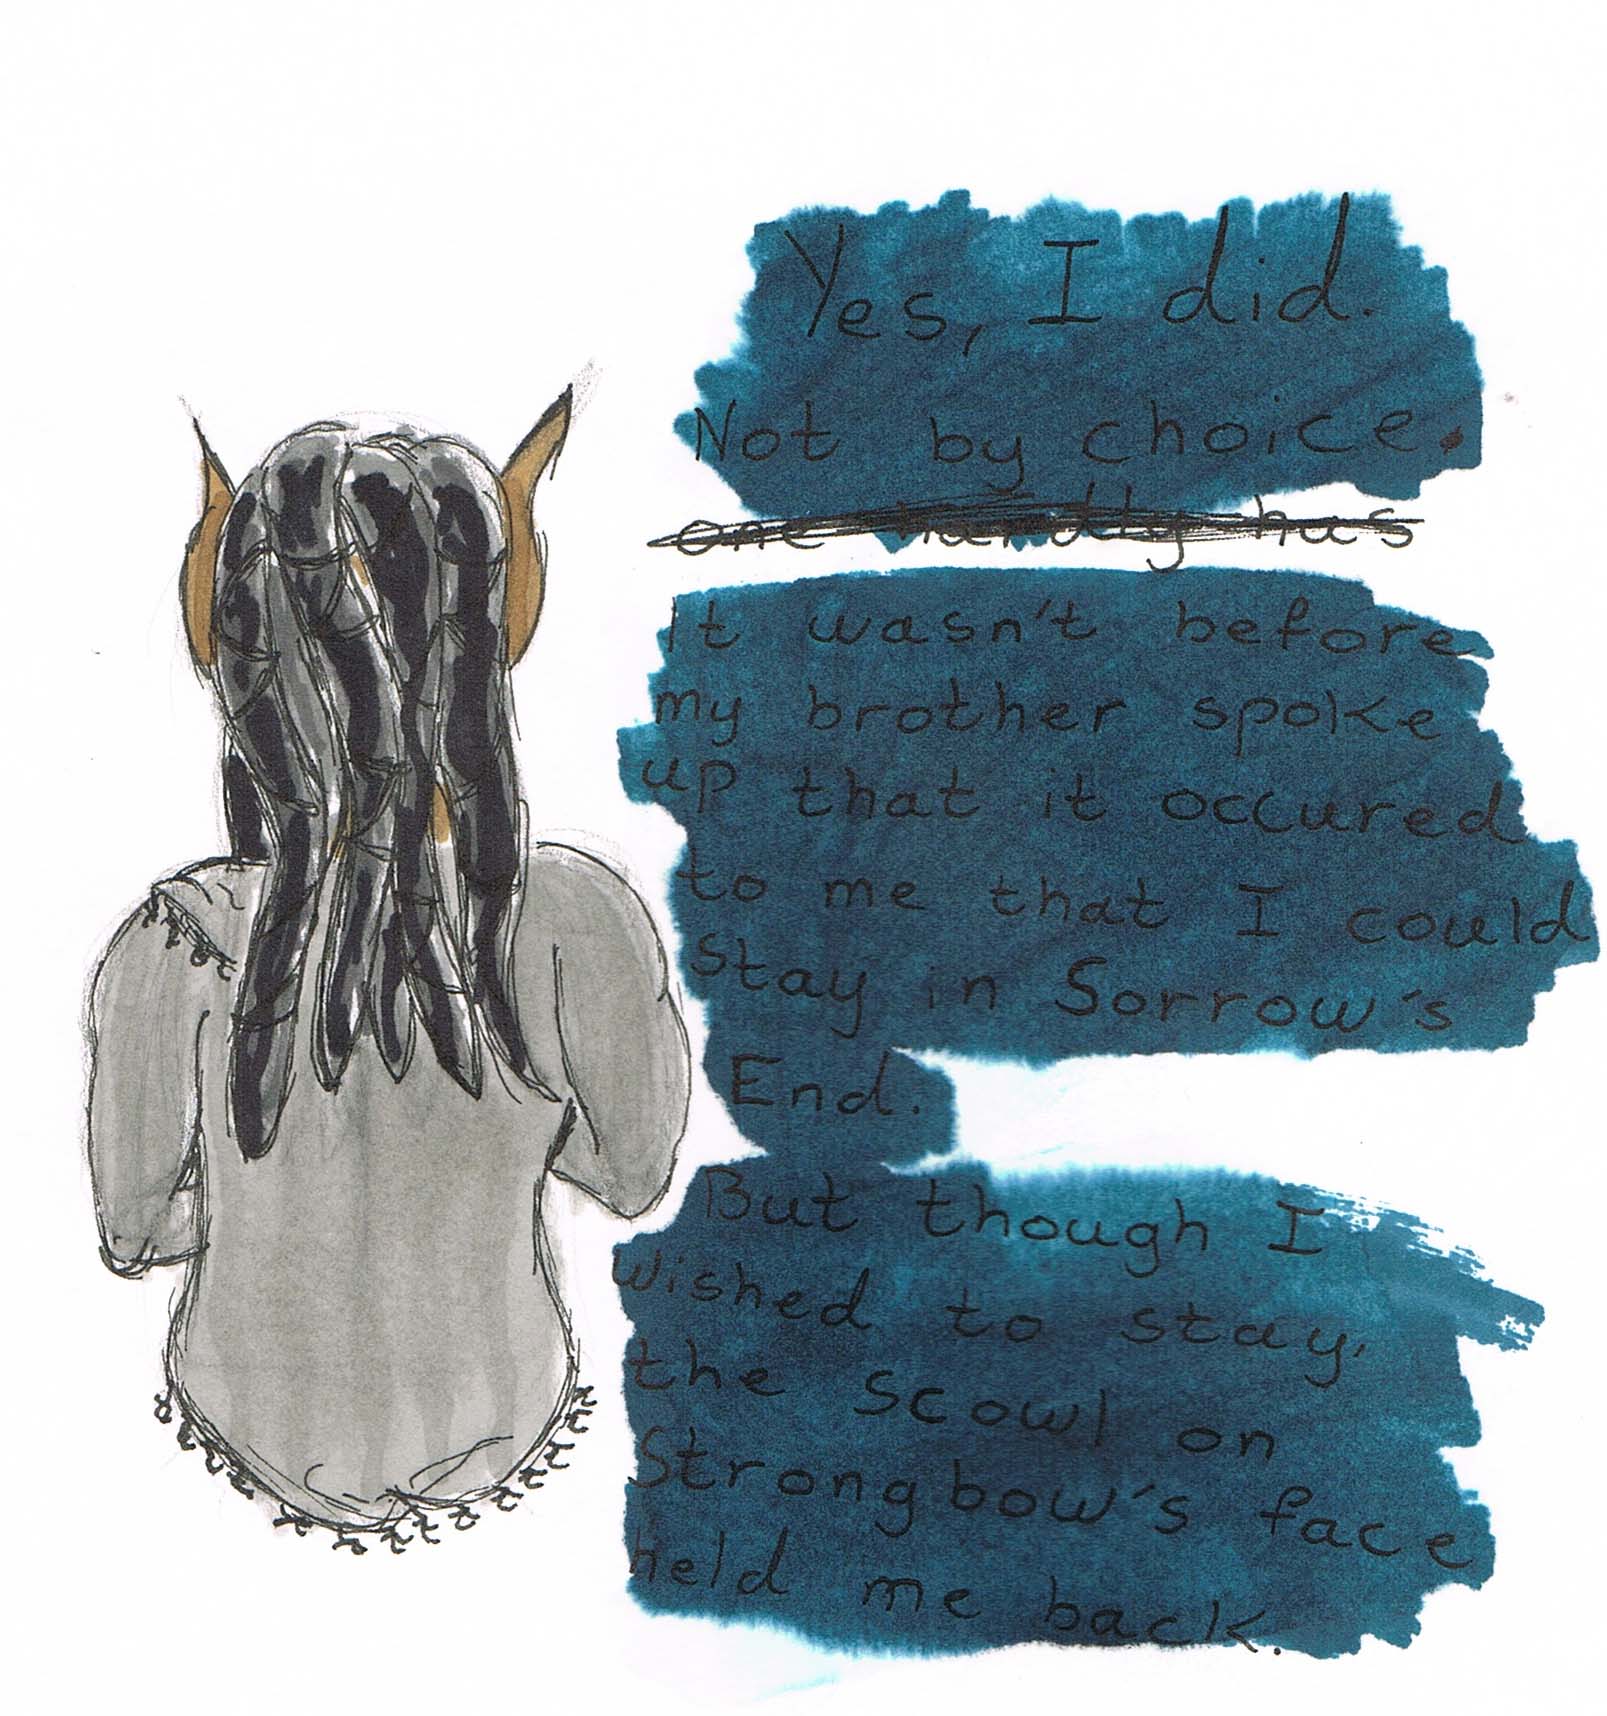 Yes, I did.
Not by choice.
one hardly has
It wasn't before
my brother spoke
up that it occured
to me that I could
stay in Sorrow's
End.
But though I
wished to stay,
the scowl on
Strongbow's face
held me back.